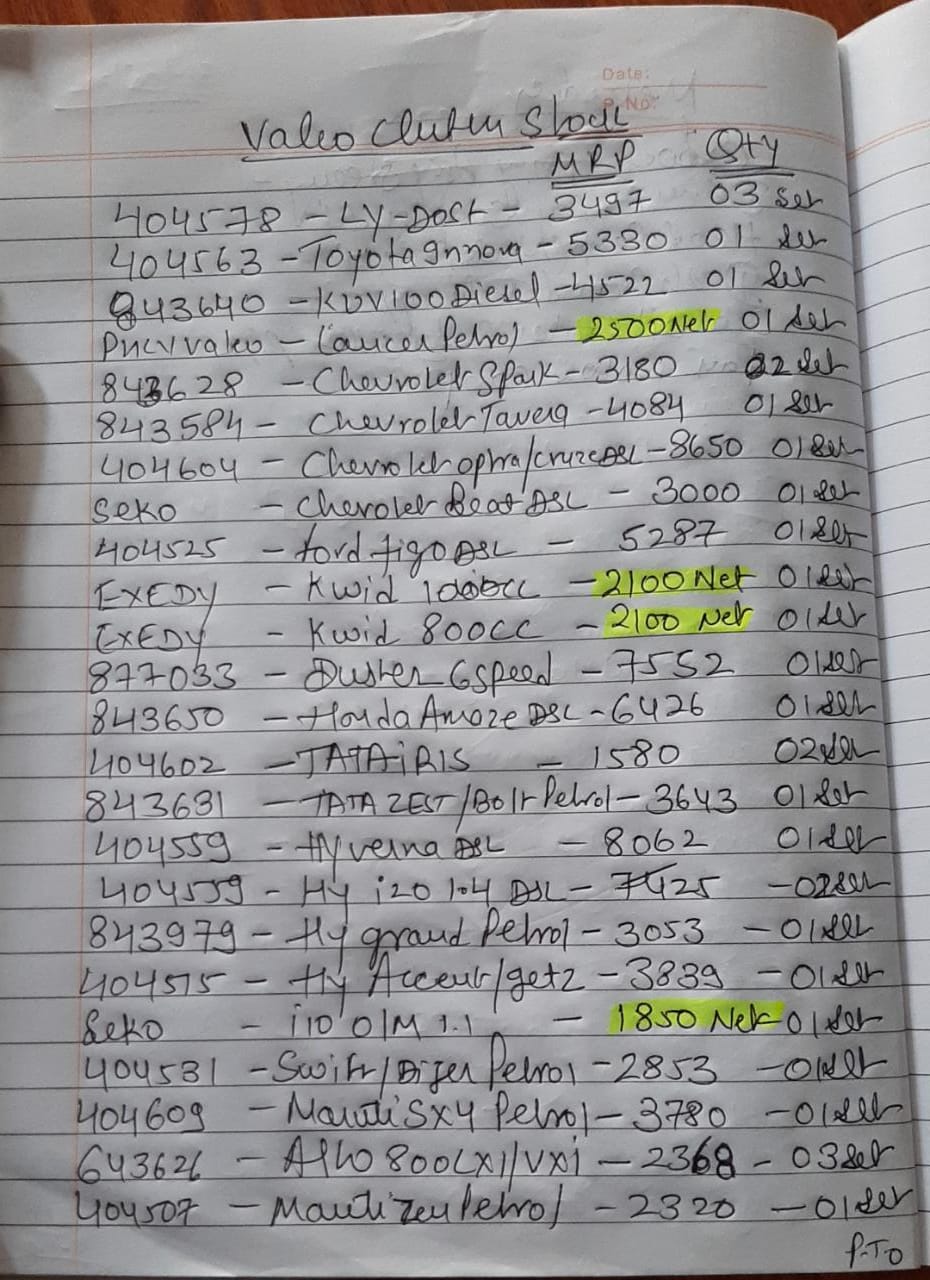 Date:
P. No:
Valeo Clutch Stock
MRP Qty
404578 - LY-Dost - 3497 03 Set
404563 - Toyota Innova - 5330 01 Set
843640 - KUV100 Diesel - 4522 01 Set
valeo - Lancer Petrol - 2500 Net 01 Set
843628 - Chevrolet Spark - 3180 02 Set
843584 - Chevrolet Tavera - 4084 01 Set
404604 - Chevrolet optra/cruze DSL - 8650 01 Set
Seko - Chevrolet Beat DSL - 3000 01 Set
404525 - ford figo DSL - 5287 01 Set
EXEDY - Kwid 1000cc - 2100 Net 01 Set
EXEDY - Kwid 800cc - 2100 Net 01 Set
877033 - Duster 6 speed - 7552 01 Set
843650 - Honda Amaze DSL - 6426 01 Set
404602 - TATA iRIS - 1580 02 Set
843631 - TATA ZEST/Bolt Petrol - 3643 01 Set
404559 - Hy verna DSL - 8062 01 Set
404559 - Hy i20 1.4 DSL - 7425 - 02 Set
843979 - Hy grand Petrol - 3053 - 01 Set
404515 - Hy Accent/getz - 3839 - 01 Set
Seko - i10 O/M 1.1 - 1850 Net 01 Set
404531 - Swift/Dizer Petrol - 2853 - 01 Set
404609 - Maruti SX4 Petrol - 3780 - 01 Set
643626 - Alto 800 LXI/VXi - 2368 - 03 Set
404507 - Maruti Zen Petrol - 2320 - 01 Set
P.T.O